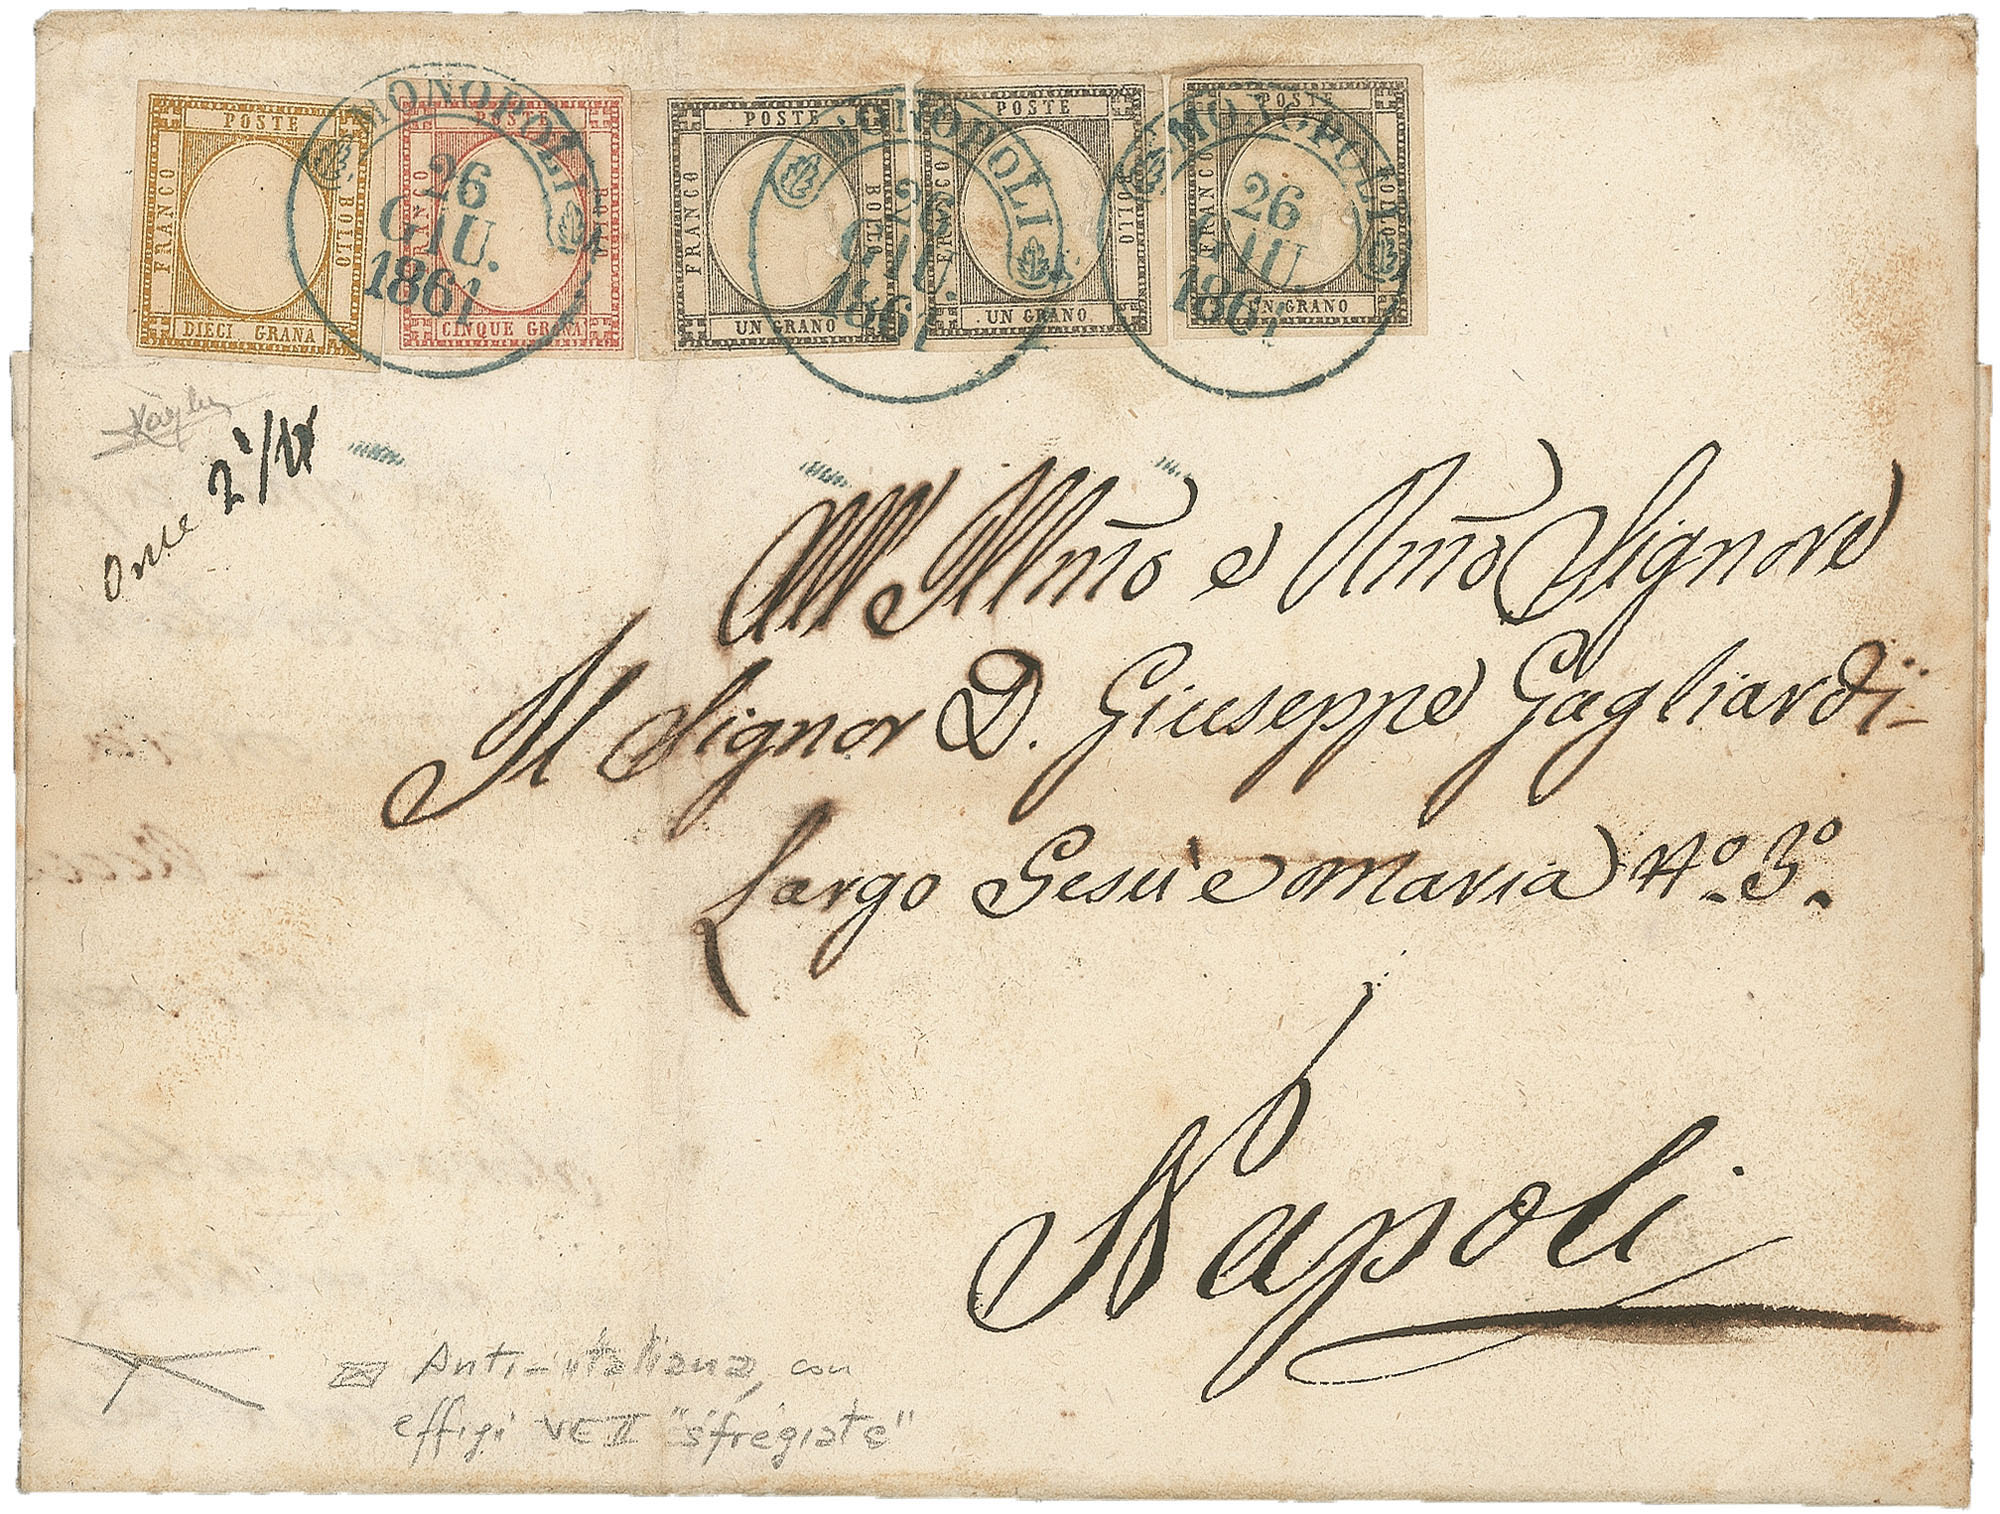 POSTE
FRANCO
BOLLO
DIECI GRANA
POSTE
FRANCO
BOLLO
CINQUE GRANA
POSTE
FRANCO
BOLLO
UN GRANO
POSTE
FRANCO
BOLLO
UN GRANO
POSTE
FRANCO
BOLLO
UN GRANO
MONOPOLI
26
GIU.
1861
MONOPOLI
26
GIU.
1861
MONOPOLI
26
GIU.
1861
Once 2 1/4
All' Illmõ e Rmõ Signore
Il Signor D. Giuseppe Gagliardi
Largo Gesù e Maria Nº. 3º.
Napoli
Anti-italiana, con
effigi VE II "sfregiate"